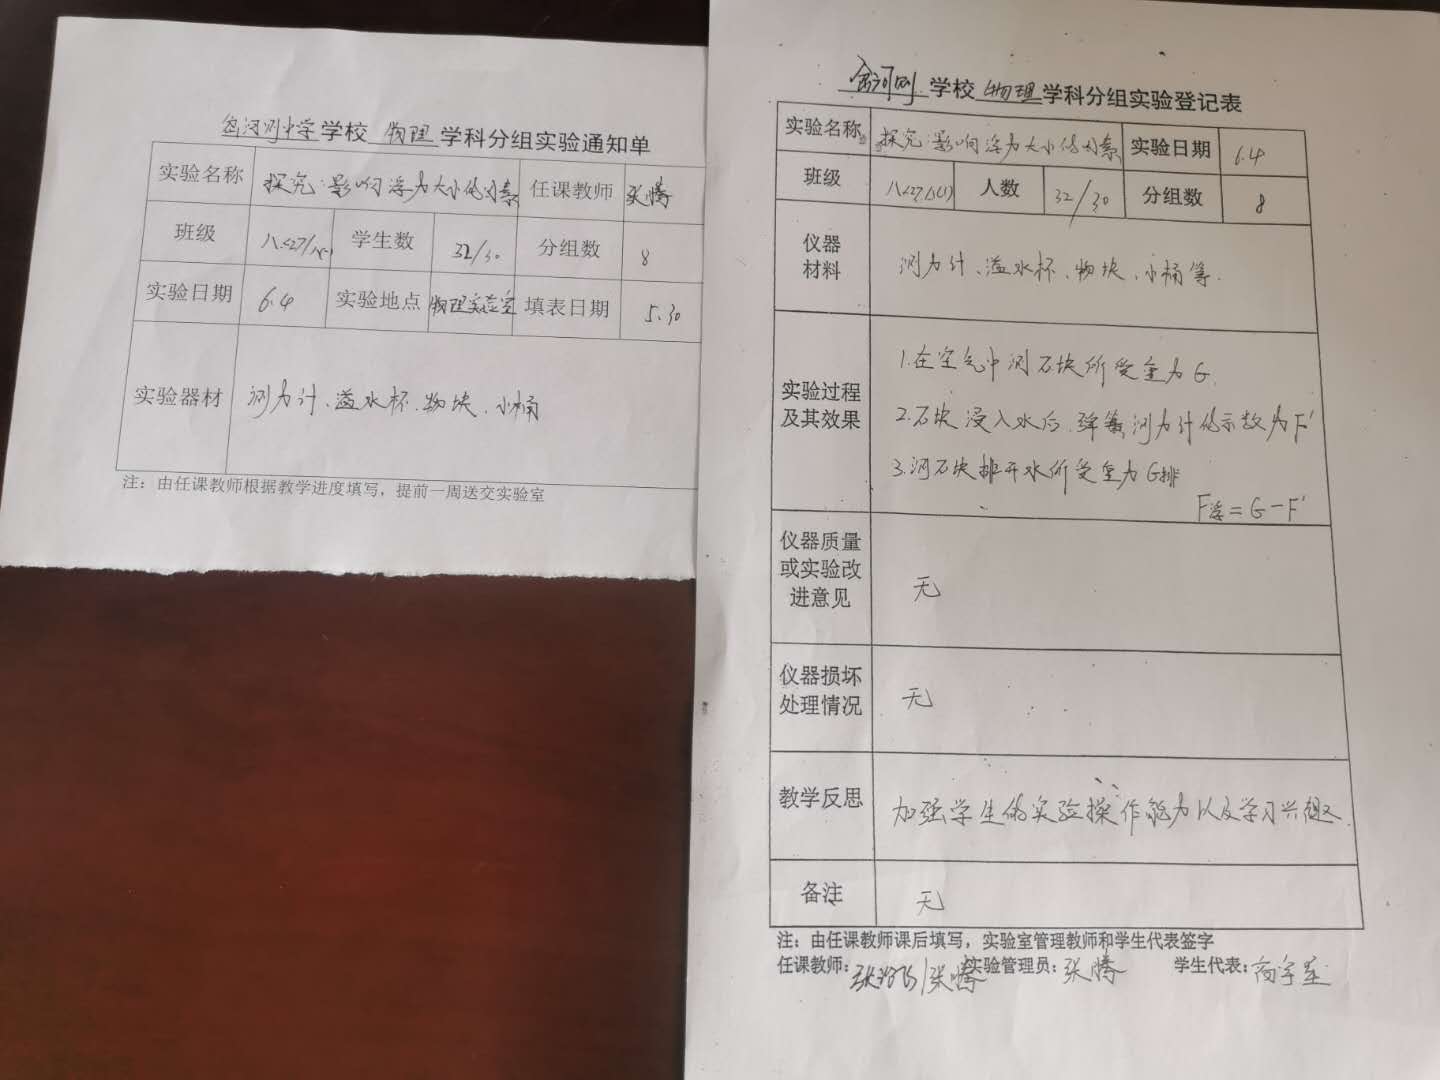 学校 物理 学科分组实验通知单
实验名称 探究:影响浮力大小的因素 任课教师 张腾
班级 学生数 32/30 分组数 8
实验日期 6.4 实验地点 物理实验室 填表日期 5.30
实验器材 测力计、溢水杯、物块、小桶
注：由任课教师根据教学进度填写，提前一周送交实验室
学校 物理 学科分组实验登记表
实验名称 探究:影响浮力大小的因素 实验日期 6.4
班级 人数 32/30 分组数 8
仪器
材料
测力计、溢水杯、物块、小桶等.
实验过程
及其效果
1.在空气中测石块所受重力G.
2.石块浸入水后.弹簧测力计的示数为F'
3.测石块排开水所受重力G排
F浮=G-F'
仪器质量
或实验改
进意见
无
仪器损坏
处理情况
无
教学反思
加强学生的实验操作能力以及学习兴趣.
备注
无
注：由任课教师课后填写，实验室管理教师和学生代表签字
任课教师: 张腾 实验管理员: 张腾 学生代表: